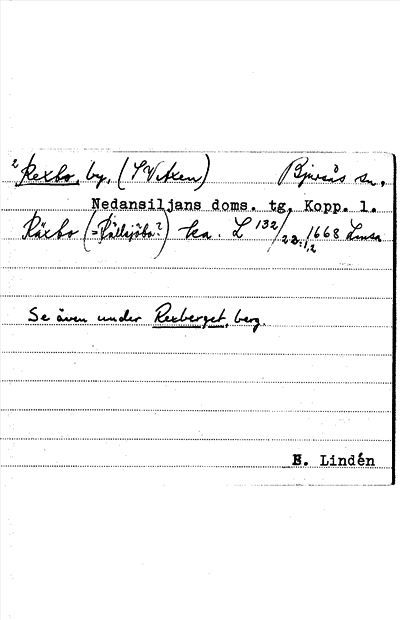 2 Rexbo, by, (S Vixen) Bjursås sn,
Nedansiljans doms. tg, Kopp. l.
Räxbo (=Rällsjöbo?) ka. L 132/22:1,2 1668
Se även under Rexberget, berg.
E. Lindén